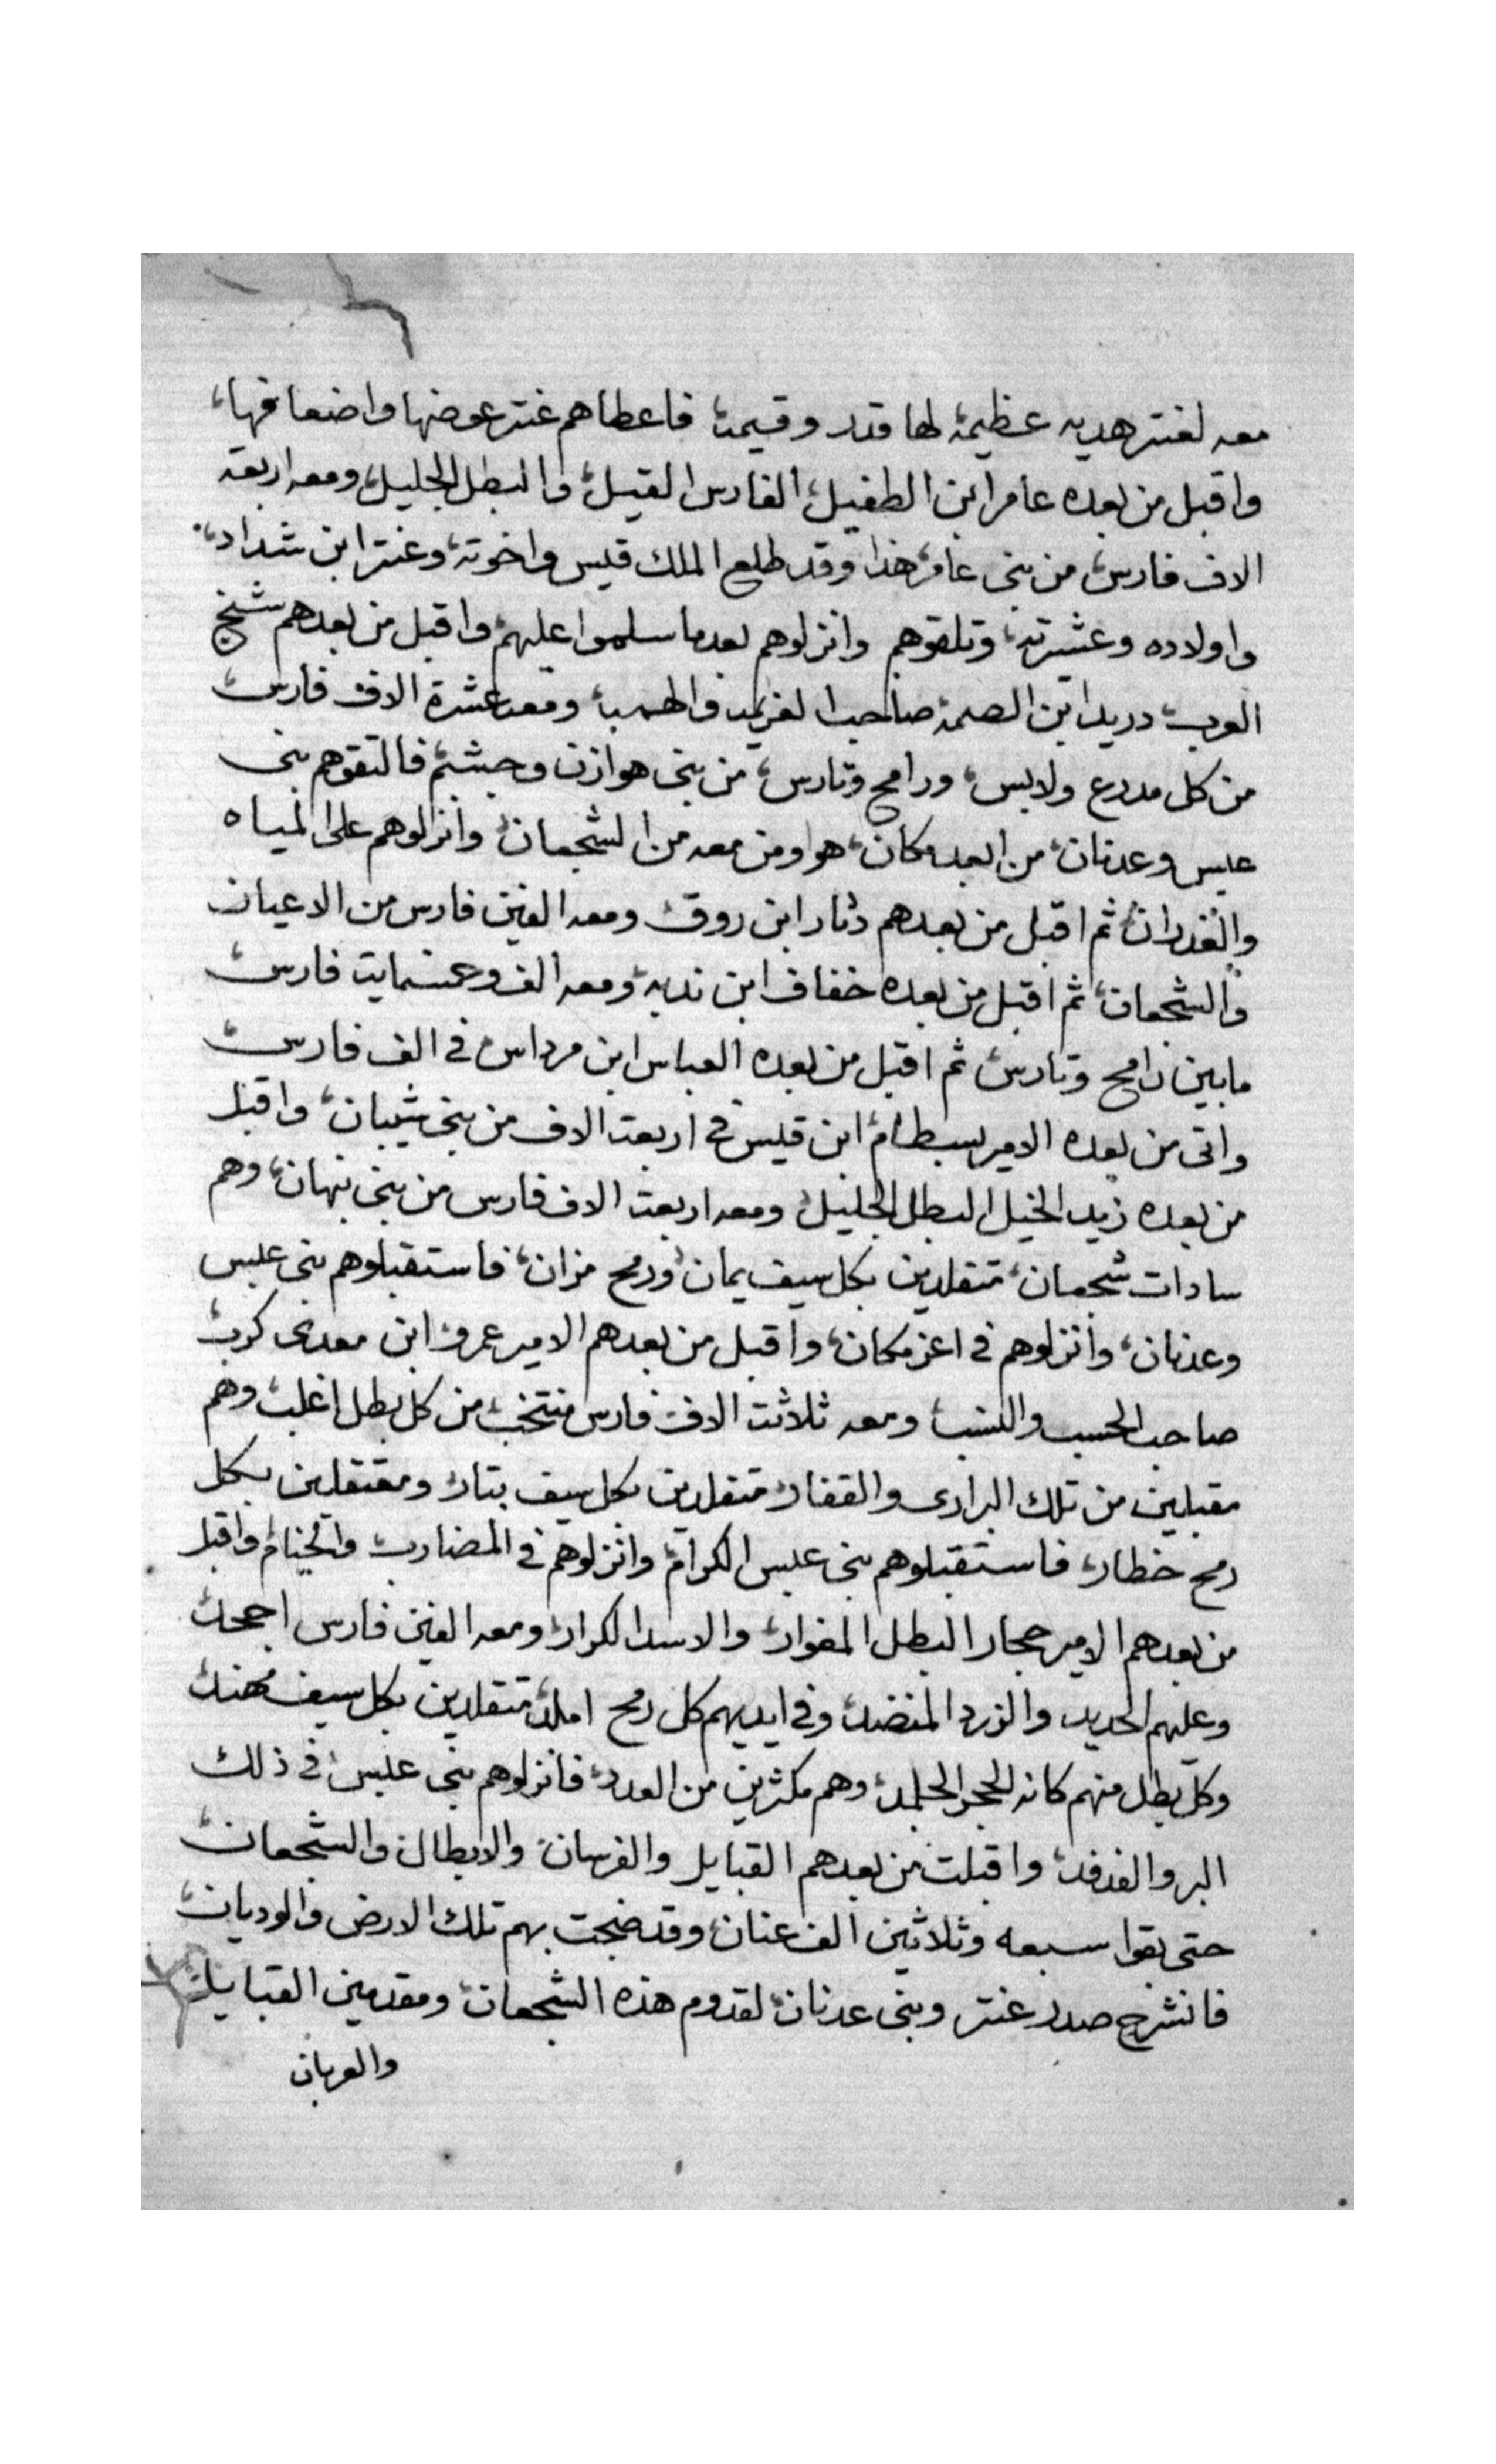 معه لعنتر هديه عظيمة لها قدر وقيمة فاعطاهم عنتر عوضها واضعافها
واقبل من بعده عامر ابن الطفيل الفارس القيل والبطل الجليل ومعه اربعة
الاف فارس من بنى عامر هذا وقد طلع الملك قيس واخوته وعنتر ابن شداد
واولاده وعشيرته وتلقوهم وانزلوهم بعدما سلموا عليهم واقبل من بعدهم شيخ
العرب دريد ابن الصمة صاحب العزيمه والهمه ومعه عشرة الاف فارس
من كل مدرع ولابس ورامح وتارس من بنى هوازن وجشم فالتقوهم بنى
عبس وعدنان من ابعد مكان هو ومن معه من الشجعان وانزلوهم على المياه
والغدران ثم اقبل من بعدهم دثار ابن روق ومعه الفين فارس من الاعيان
والشجعان ثم اقبل من بعده خفاف ابن ندبه ومعه الف وخمسمايت فارس
مابين رامح وتارس ثم اقبل من بعده العباس ابن مرداس فى الف فارس
واتى من بعده الامير بسطام ابن قيس فى اربعت الاف من بنى شيبان واقبل
من بعده زيد الخيل البطل الجليل ومعه اربعت الاف فارس من بنى نبهان وهم
سادات شجعان متقلدين بكل سيف يمان ورمح مران فاستقبلوهم بنى عبس
وعدنان وانزلوهم فى اعز مكان واقبل من بعدهم الامير عمرو ابن معدى كرب
صاحب الحسب والنسب ومعه ثلاثت الاف فارس منتخب من كل بطل اغلب وهم
مقبلين من تلك البرارى والقفار متقلدين بكل سيف بتار ومعتقلين بكل
رمح خطار فاستقبلوهم بنى عبس الكرام وانزلوهم فى المضارب والخيام واقبل
من بعدهم الامير حجار البطل المغوار والاسد الكرار ومعه الفين فارس اجحد
وعليهم الحديد والزرد المنضد وفى ايديهم كل رمح املد متقلدين بكل سيف مهند
وكل بطل منهم كانه الحجر الجلمد وهم مكثرين من العدد فانزلوهم بنى عبس فى ذلك
البر والفدفد واقبلت من بعدهم القبايل والفرسان والابطال والشجعان
حتى بقوا سبعه وثلاثين الف عنان وقد ضجت بهم تلك الارض والوديان
فانشرح صدر عنتر وبنى عدنان لقدوم هذه الشجعان ومقدمين القبايل
والعربان